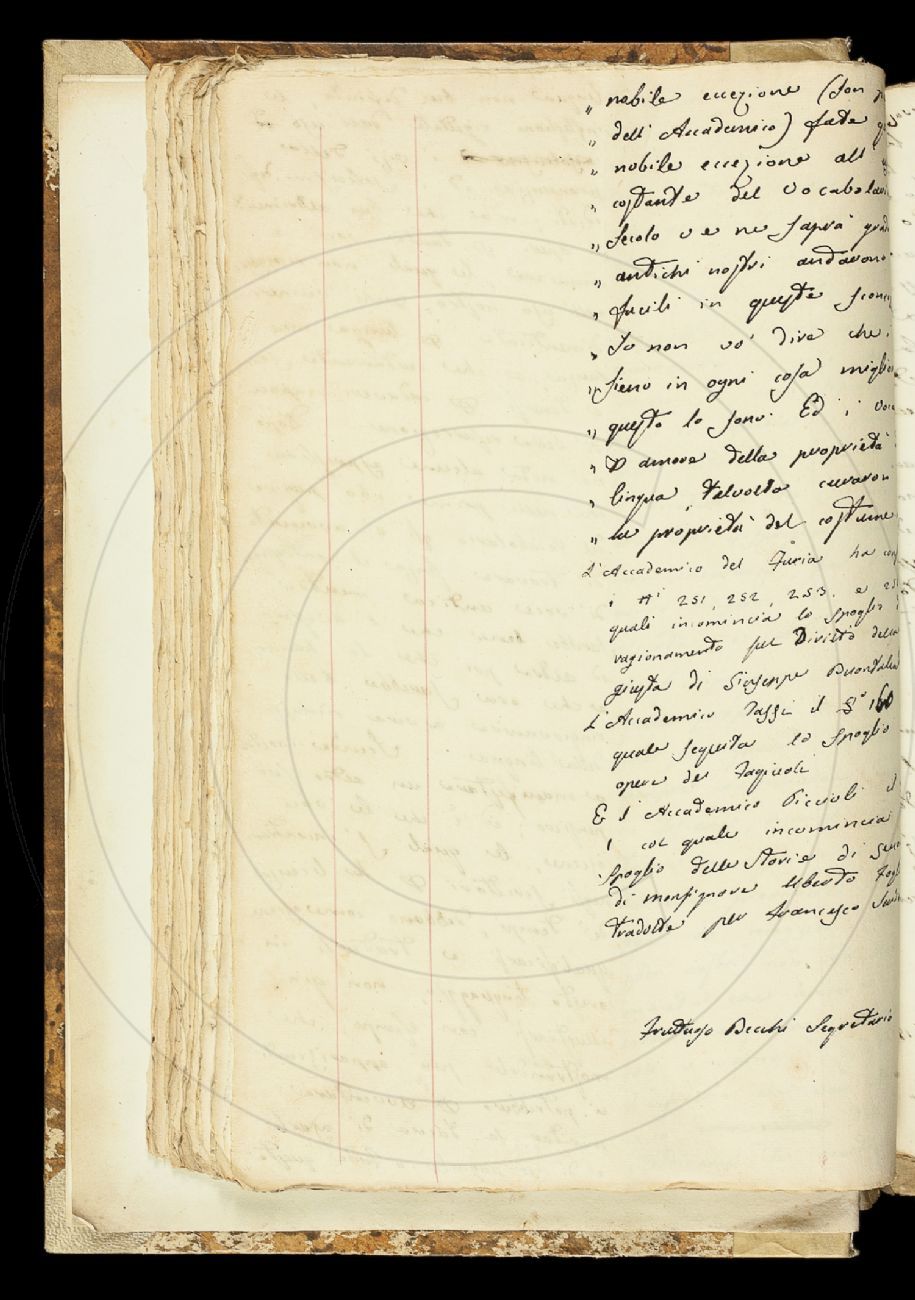 „ nobile eccezione (son
„ dell' Accademico) fate
„ nobile eccezione all'
„ costante del Vocabolari
„ secolo v e ne saprà grad
„ antichi nostri andavono
„ facili in queste sconc
„ Io non vo' dire che i
„ sieno in ogni cosa miglio
„ questo lo sono. Ed i
„ D'amore della proprietà
„ lingua, talvolta curavon
„ la proprietà del costume
L'Accademico del Furia ha
i Nⁱ 251, 252, 253. e 25
quali incomincia lo spoglio
ragionamento sul Divieto della
giunta di Giuseppe Buontalen
L'Accademico Tassi il §° 160
quale seguita lo spoglio
opere del Fagiuoli
E l'Accademico Piccioli il
1 col quale incomincia
spoglio delle Storie di Gen
di monsignore Uberto Fogl
tradotte per Francesco
Fruttuoso Becchi Segretario